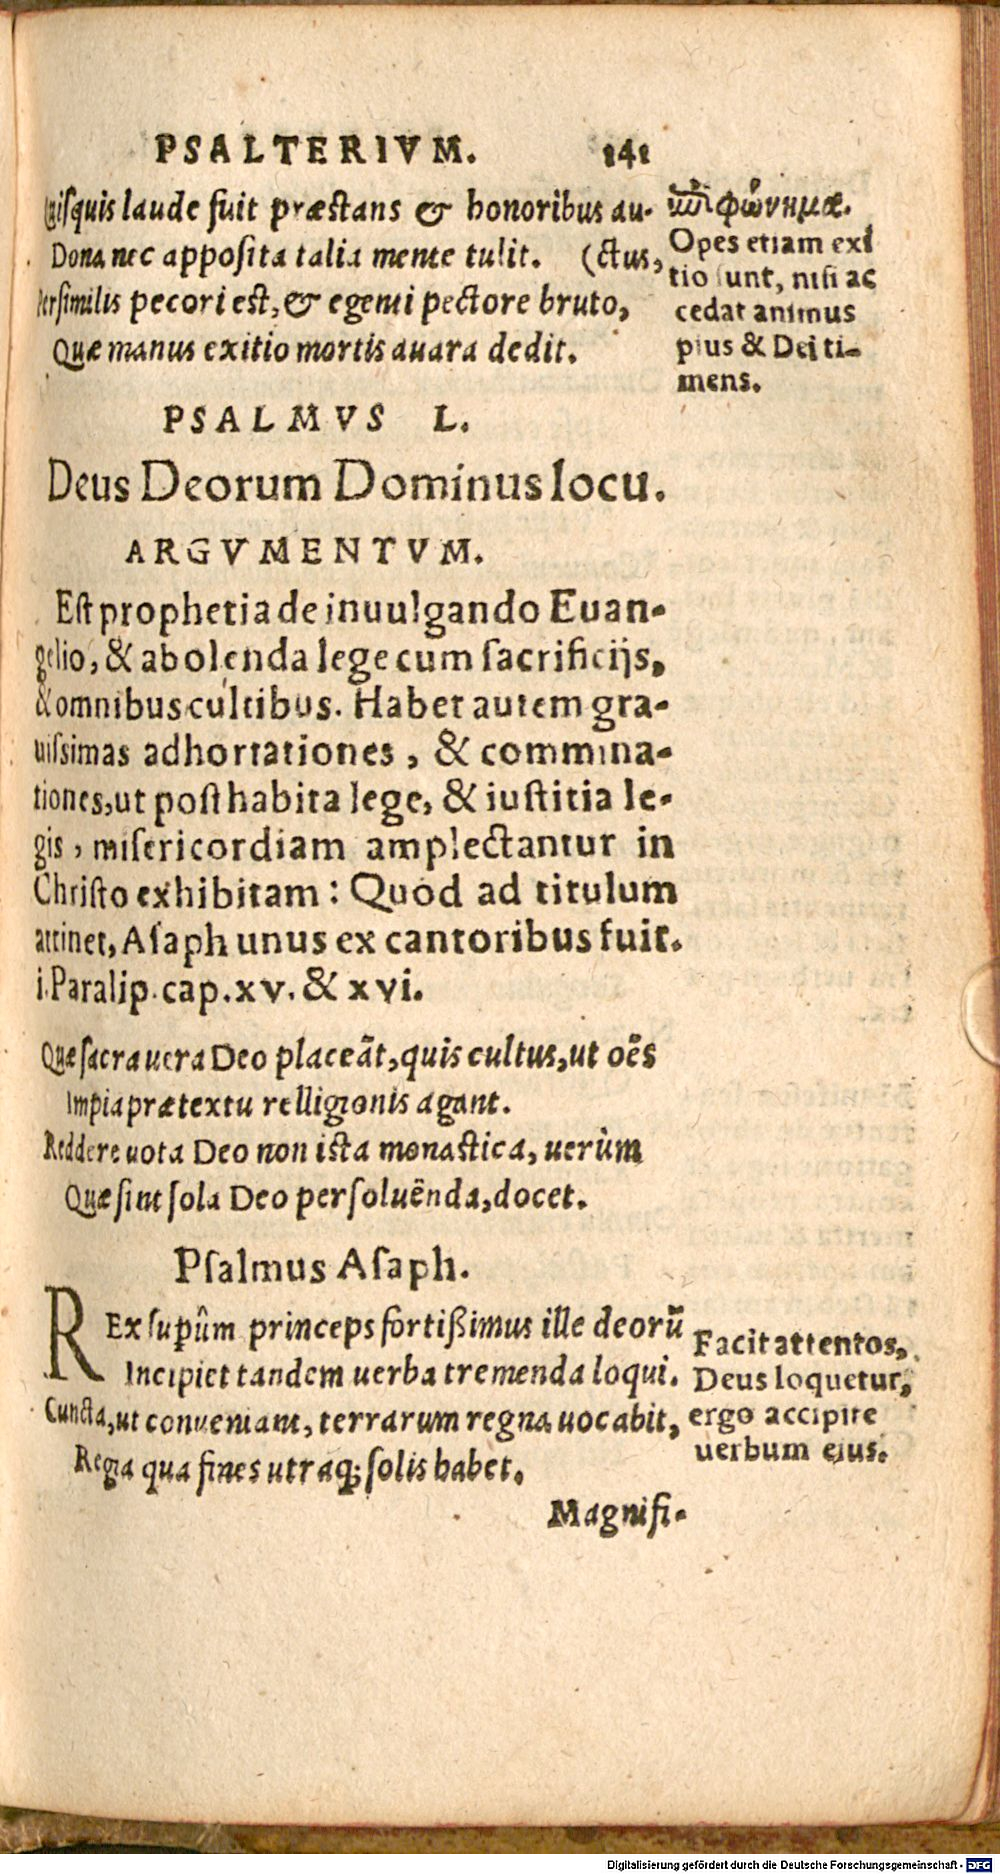 PSALTERIVM. 141
Quisquis laude fuit præstans & honoribus au-
Dona nec apposita talia mente tulit. (ctus,
Persimilis pecori est, & egenti pectore bruto,
Quæ manus exitio mortis auara dedit.
ἐπιφώνημα.
Opes etiam exi
tio sunt, nisi ac
cedat animus
pius & Dei ti-
mens.
PSALMVS L.
Deus Deorum Dominus locu.
ARGVMENTVM.
Est prophetia de inuulgando Euan-
gelio, & abolenda lege cum sacrificijs,
& omnibus cultibus. Habet autem gra-
uissimas adhortationes, & commina-
tiones, ut posthabita lege, & iustitia le-
gis, misericordiam amplectantur in
Christo exhibitam: Quòd ad titulum
attinet, Asaph unus ex cantoribus fuit.
i. Paralip. cap. xv. & xvi.
Quæ sacra uera Deo placeãt, quis cultus, ut oẽs
Impia prætextu relligionis agant.
Reddere uota Deo non ista monastica, uerùm
Quæ sint sola Deo persoluẽnda, docet.
Psalmus Asaph.
REx supûm princeps fortißimus ille deorũ
Incipiet tandem uerba tremenda loqui.
Cuncta, ut conueniant, terrarum regna uocabit,
Regia qua fines utraq; solis habet.
Facit attentos,
Deus loquetur,
ergo accipite
uerbum eius.
Magnifi-
Digitalisierung gefördert durch die Deutsche Forschungsgemeinschaft - DFG